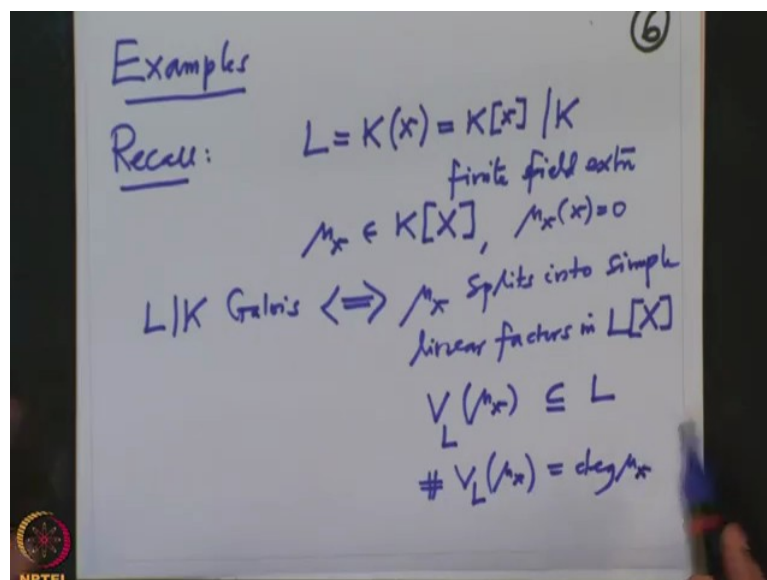 6
Examples
Recall: L = K(x) = K[x] | K
finite field extn̄
μₓ ∈ K[X], μₓ(x)=0
L|K Galois <=> μₓ splits into simple
linear factors in L[X]
V_L(μₓ) ⊆ L
# V_L(μₓ) = deg μₓ
NPTEL